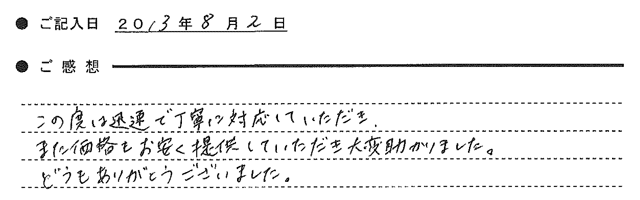 ● ご記入日 2013年8月2日
● ご感想
この度は迅速で丁寧に対応していただき、
また価格もお安く提供していただき大変助かりました。
どうもありがとうございました。